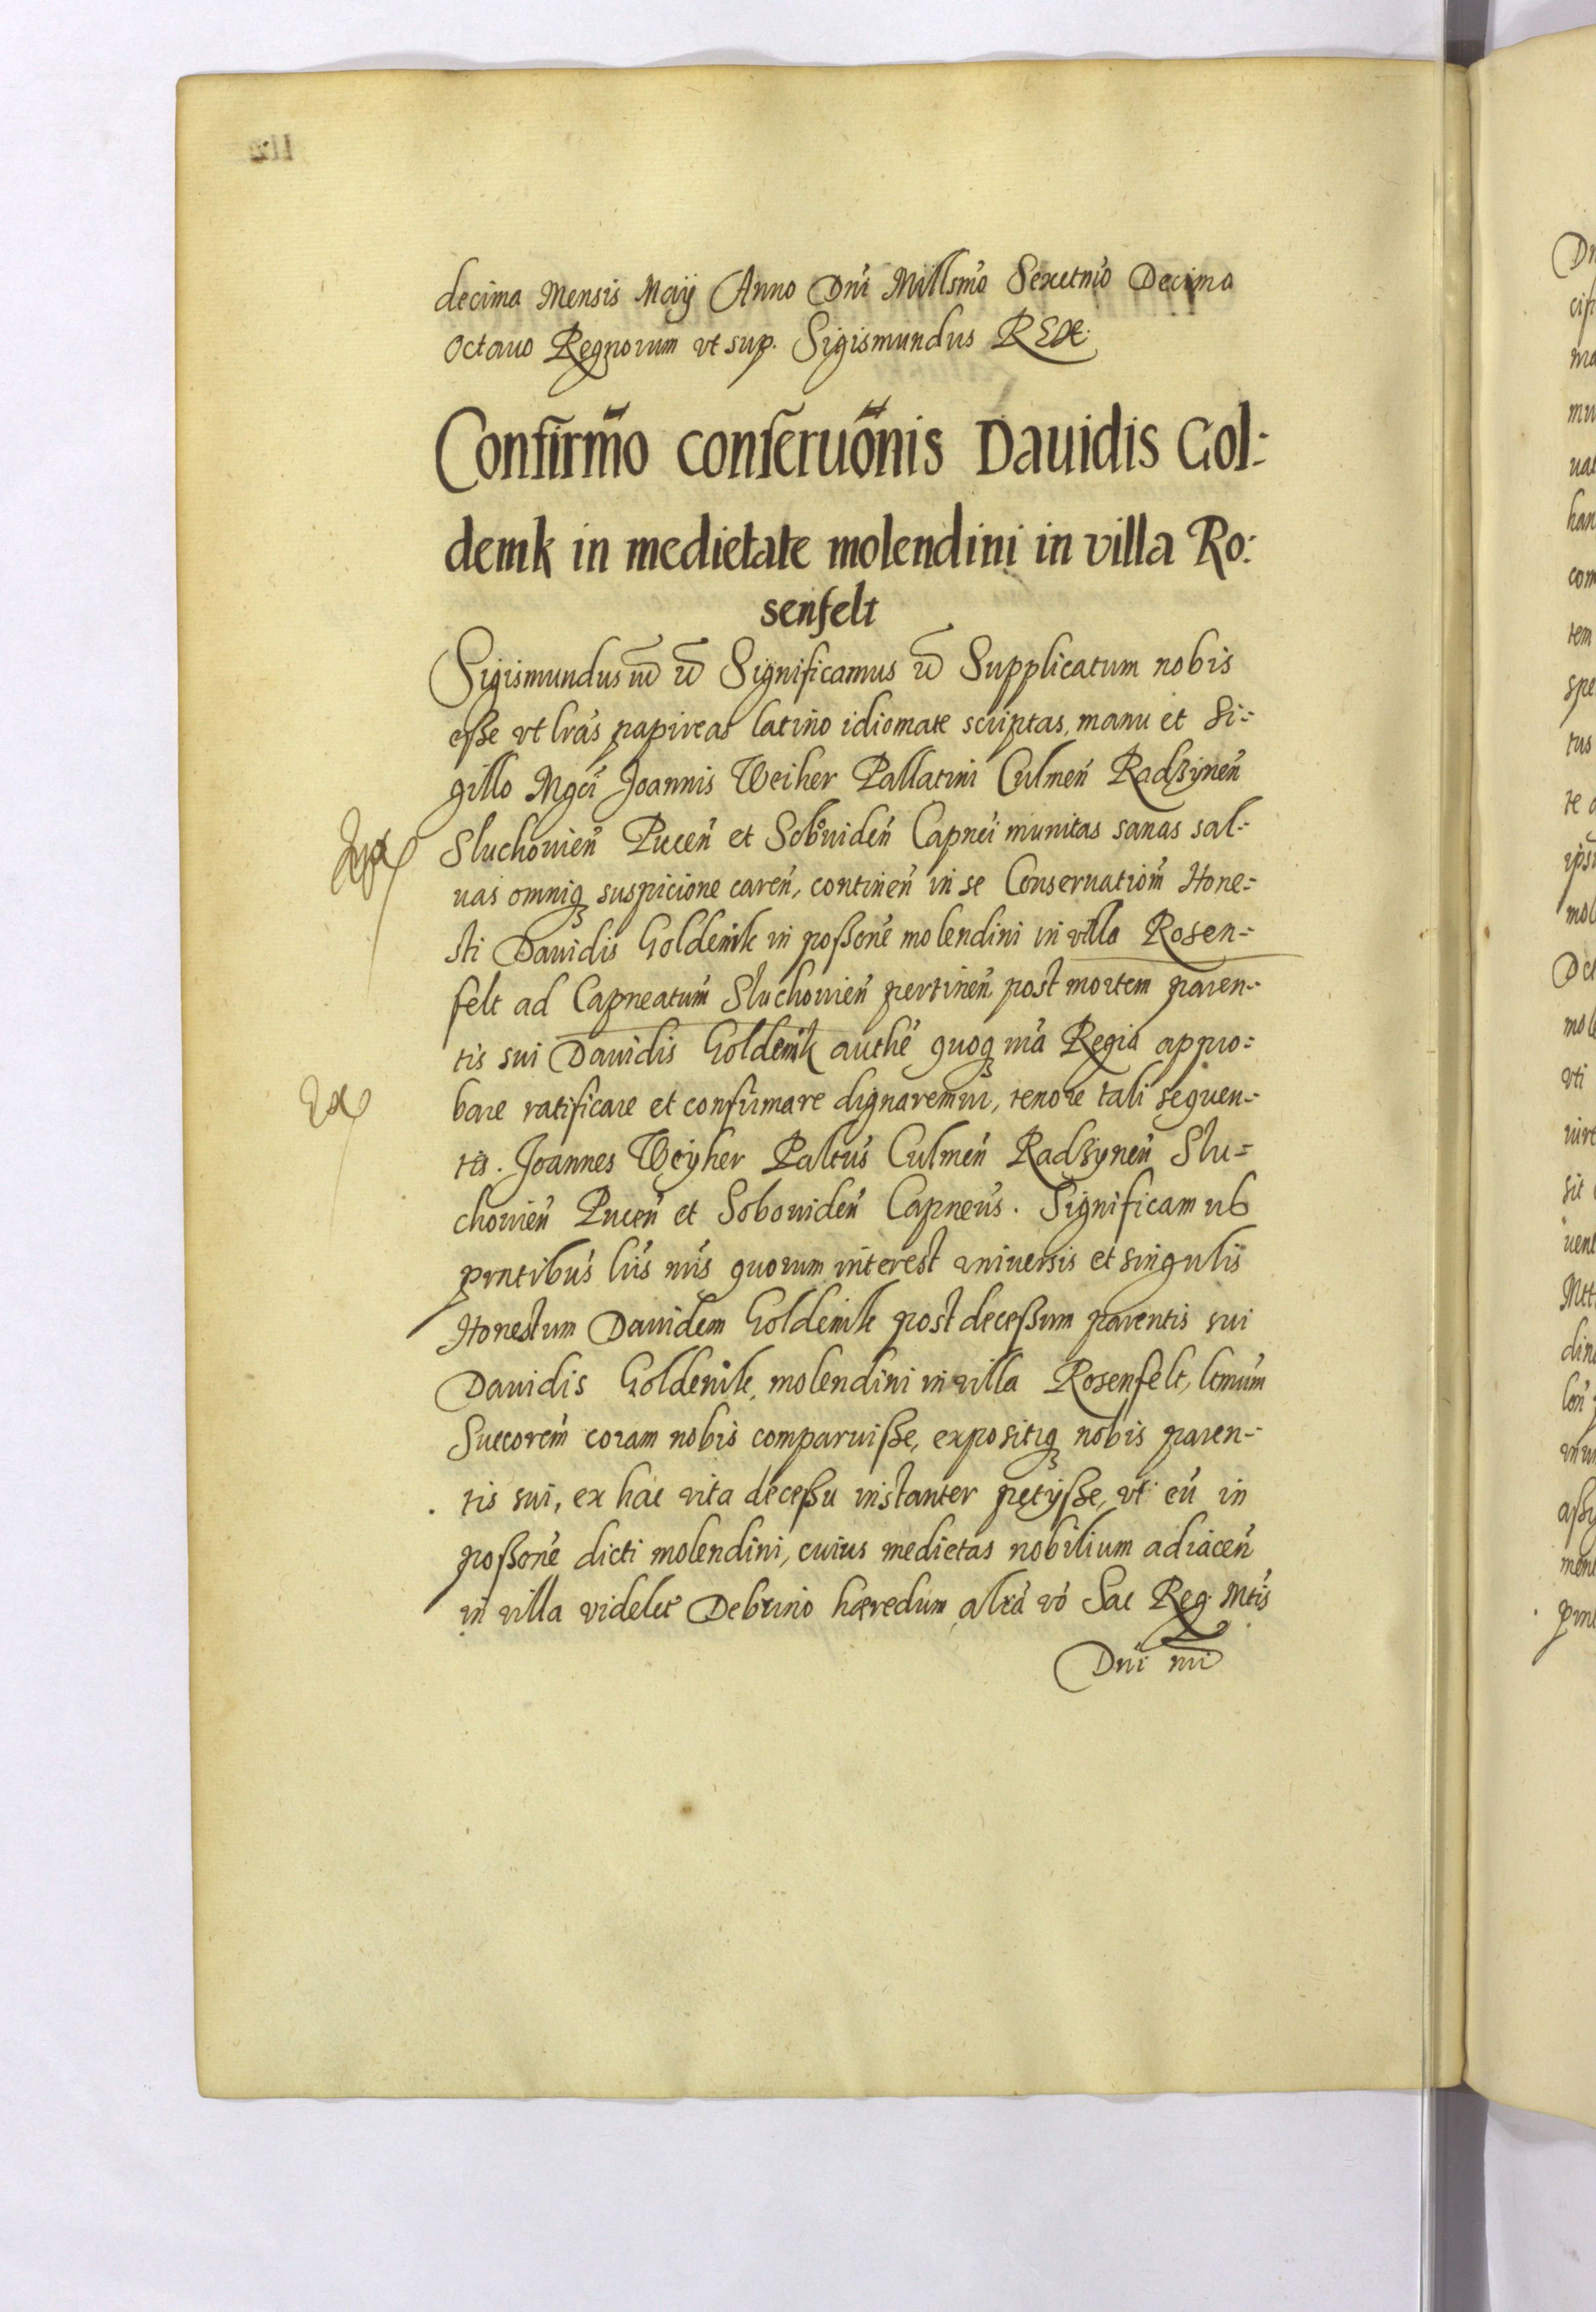 decima Mensis Maÿ Anno Dni Millsmo Sexctmo Decimo
Octauo Regnorum vt sup. Sigismundus REX.
Confirmo conseruonis Dauidis Gol:
demk in medietate molendini in villa Ro:
senfelt
Sigismundus Significamus Supplicatum nobis
esse vt lras papireas latino idiomate scriptas, manu et Si=
gillo Mgci Joannis Weiher Pallatini Culmen Radzynen
Sluchouien Pucen et Sobouiden Capnei munitas sanas sal=
uas omniq suspicione caren, continen in se Conseruationm Hone=
sti Dauidis Goldemk in possone molendini in villa Rosen=
felt ad Capneatum Sluchouien pertinen, post mortem paren=
tis sui Dauidis Goldemk authe quoq nra Regia appro=
bare ratificare et confirmare dignaremur, tenore tali sequen=
tis. Joannes Weÿher Paltus Culmen Radzynen Slu=
chouien Pucen et Sobouiden Capneus. Significamus
pntibus lris nris quorum interest vniuersis et singulis
Honestum Dauidem Goldemk post decessum parentis sui
Dauidis Goldemk, molendini in villa Rosenfelt, ltmum
Succorem coram nobis comparuisse, expositiq nobis paren=
tis sui, ex hac vita decessu instanter petÿsse, vti eu in
possone dicti molendini, cuius medietas nobilium adiacen
in villa videlct Debrino hæredum altra vo Sac Reg. Mtis
Dni nri